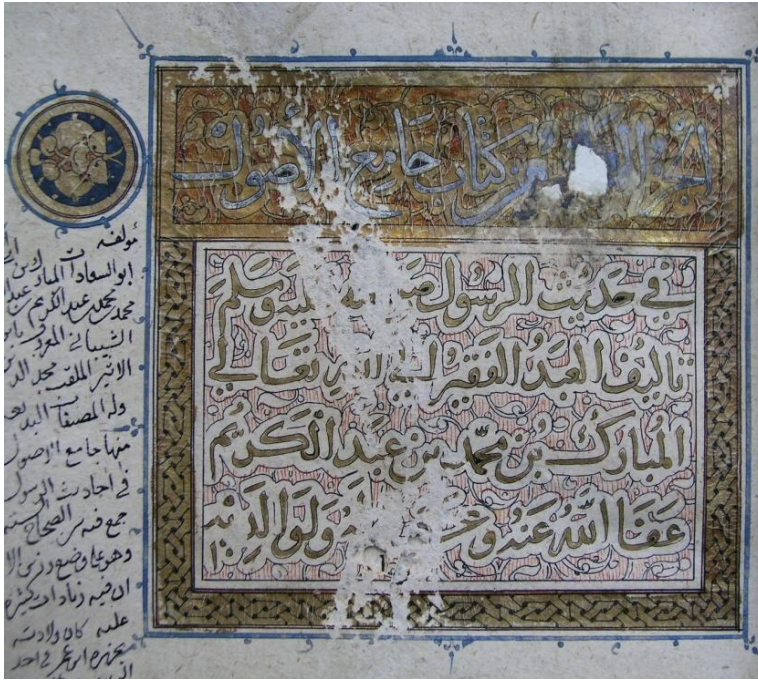 الجزء كتاب جامع الأصول
في حديث الرسول صلى عليه وسلم
تأليف العبد الفقير إلى الله تعالى
المبارك بن محمد بن عبد الكريم
عفا الله عنه و ولوالديه
مؤلفه
ابو السعادات المبارك بن
محمد بن محمد بن عبد الكريم
الشيباني المعروف بابن
الاثير الملقب مجد الدين
وله المصنفات البديعة
منها جامع الاصول
في احاديث الرسول
جمع فيه بين الصحاح الستة
وهو على وضع رزين الا
ان فيه زيادات كثيرة
عليه كان ولادته
بجزيرة ابن عمر في احد